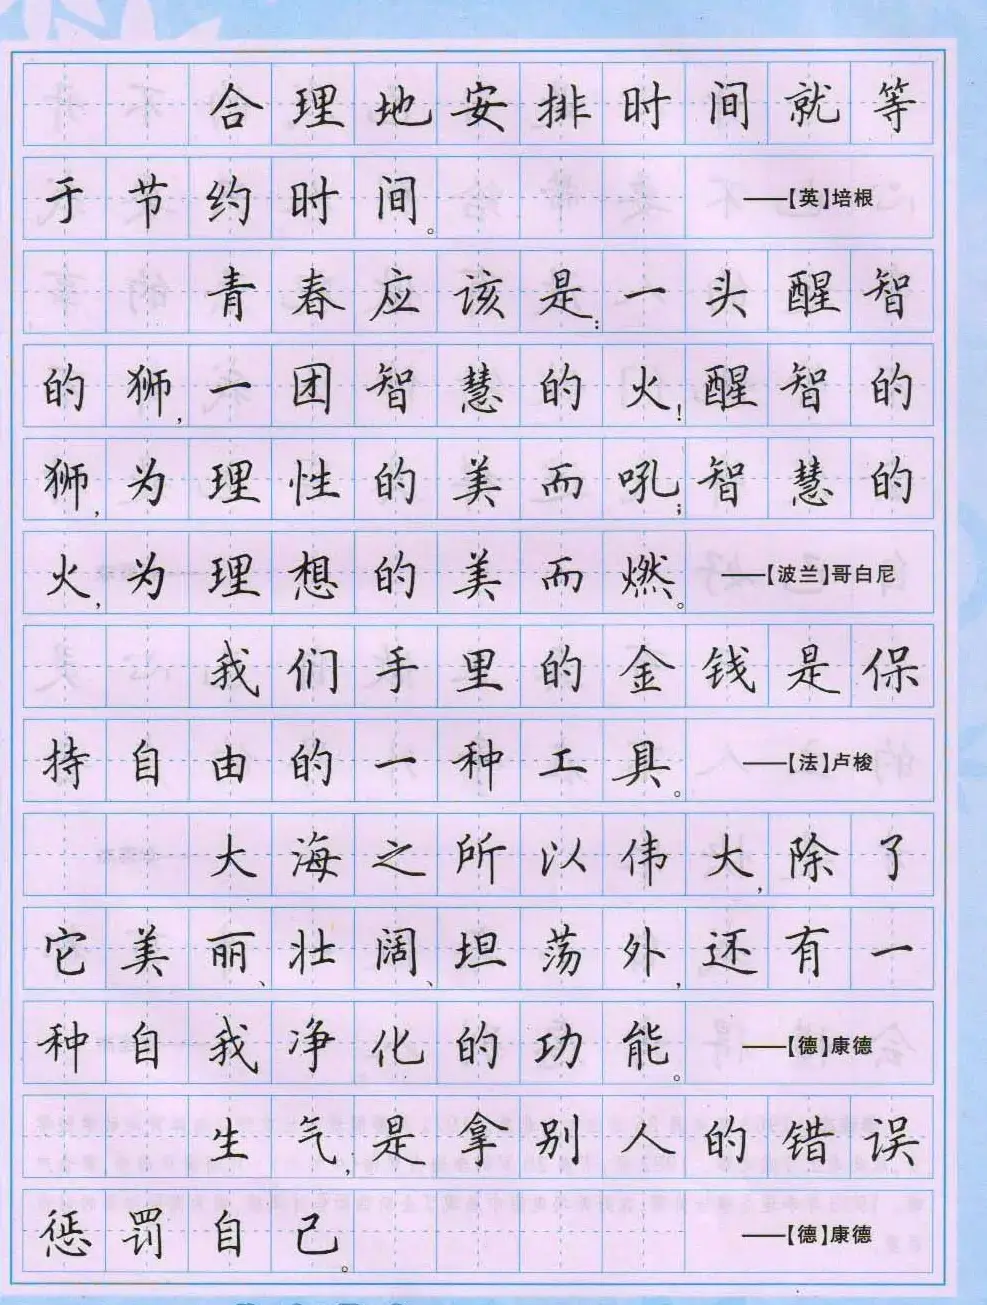 合理地安排时间就等
于节约时间。 ——【英】培根
青春应该是:一头醒智
的狮,一团智慧的火!醒智的
狮,为理性的美而吼;智慧的
火,为理想的美而燃。 ——【波兰】哥白尼
我们手里的金钱是保
持自由的一种工具。 ——【法】卢梭
大海之所以伟大,除了
它美丽、壮阔、坦荡外,还有一
种自我净化的功能。 ——【德】康德
生气,是拿别人的错误
惩罚自己。 ——【德】康德